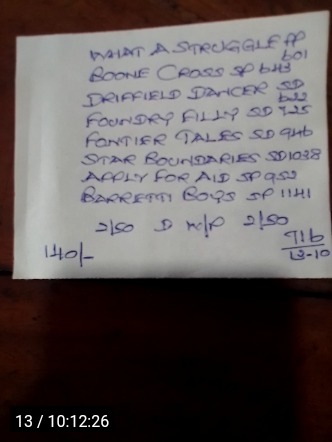 WHAT A STRUGGLE PP
601
BOONE CROSS SP 643
DRIFFIELD DANCER SD
622
FOUNDRY FILLY SD 725
FONTIER TALES SD 946
STAR BOUNDARIES SD 1038
APPLY FOR AID SP 952
BARRETTI BOYS SP 1141
2/50 D W/P 2/50
140/- 716
13-10
13 / 10:12:26